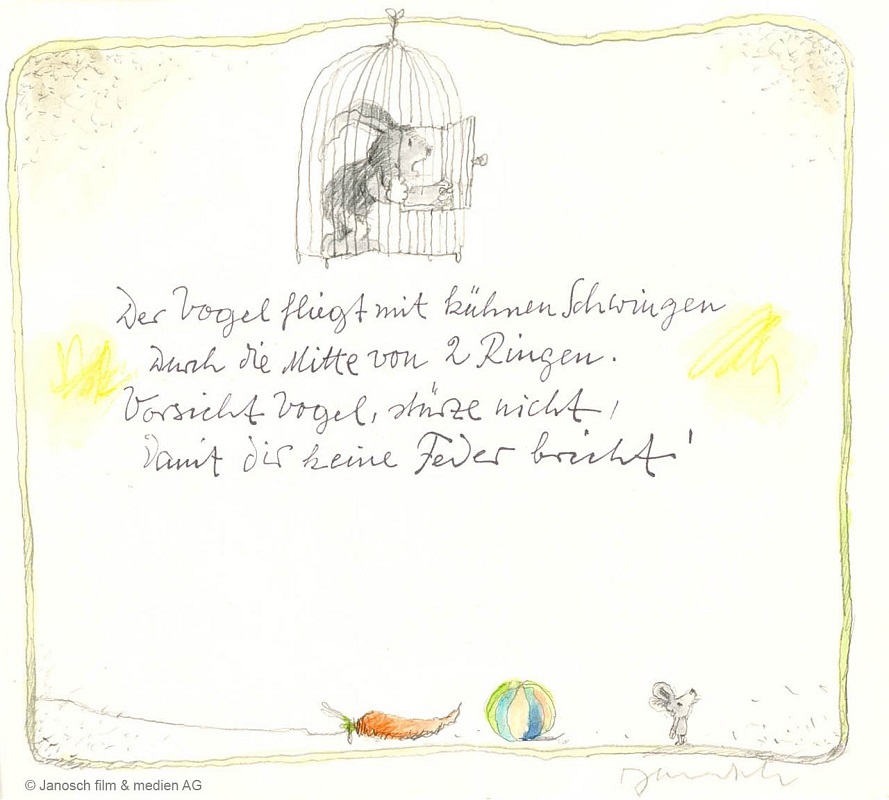 Der Vogel fliegt mit kühnen Schwingen
Durch die Mitte von 2 Ringen.
Vorsicht Vogel, stürze nicht,
Damit dir keine Feder bricht!
Janosch
© Janosch film & medien AG